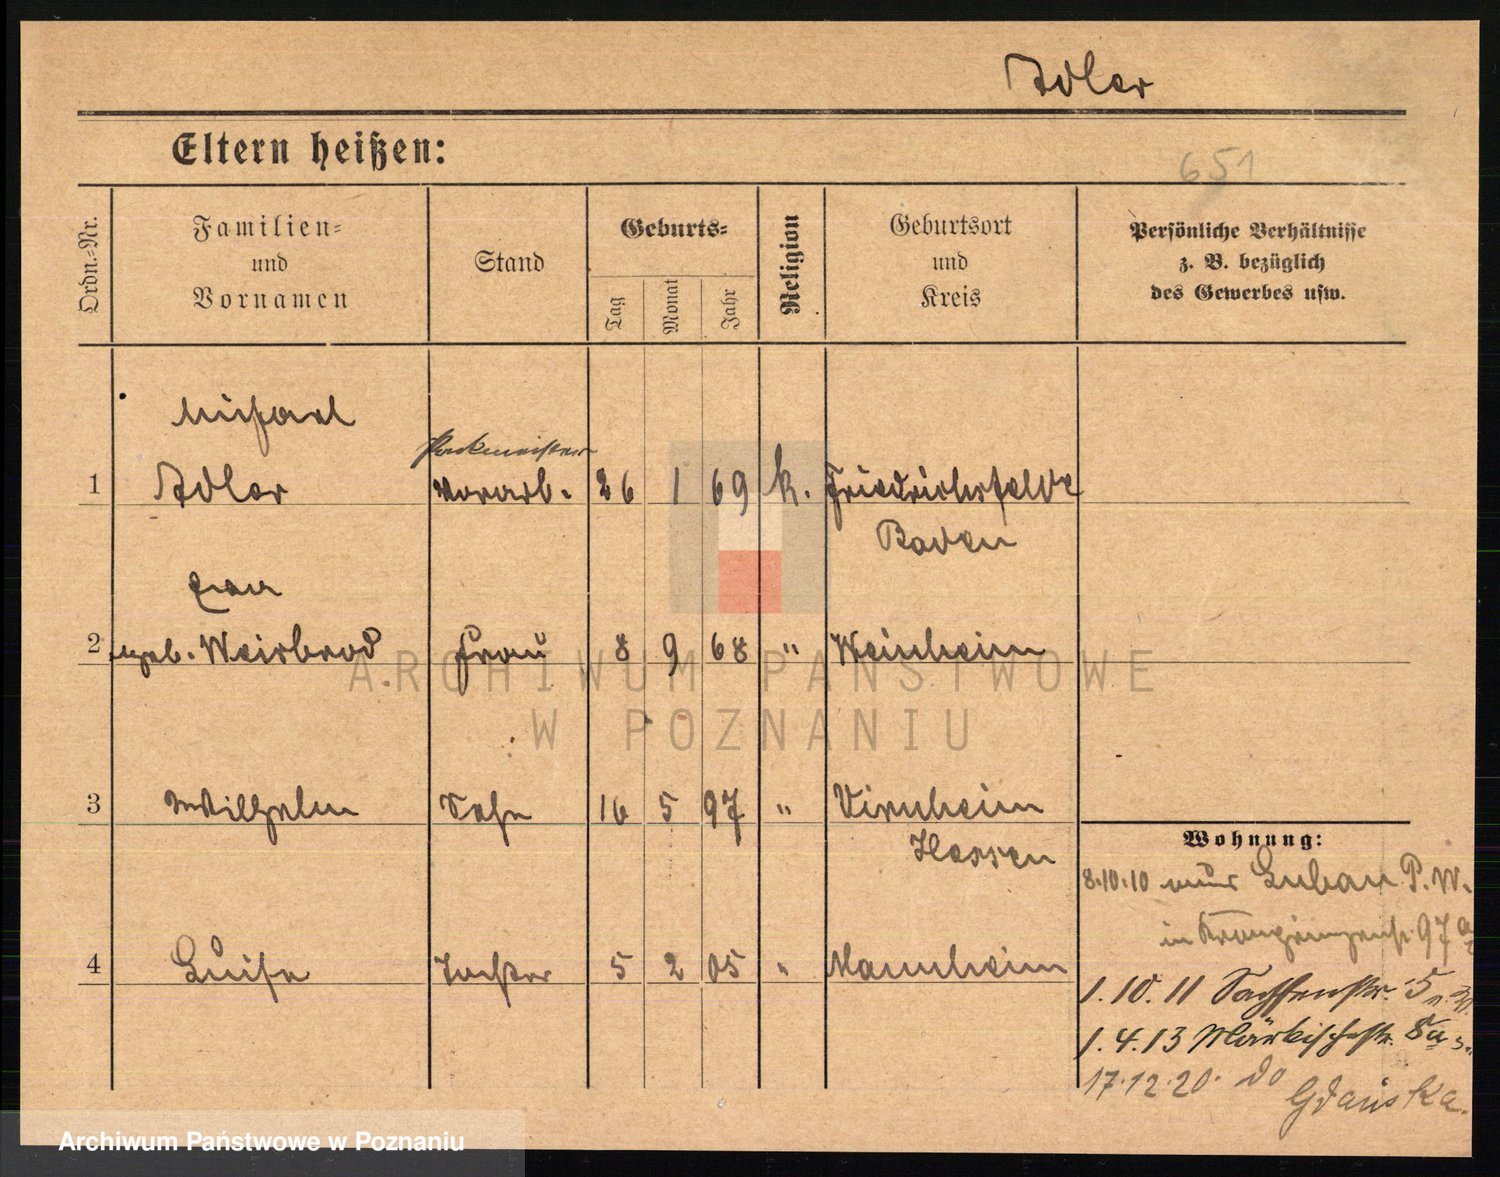 Adler
Eltern heißen:
651
Ordn.-Nr.
Familien-
und
Vornamen
Stand
Geburts-
Tag
Monat
Jahr
Religion
Geburtsort
und
Kreis
Persönliche Verhältnisse
z. B. bezüglich
des Gewerbes usw.
Michael
1 Adler Vorarb. 26 1 69 k. Friedrichsfelde
Baden
2 geb. Weisbrod Frau 8 9 68 " Weinheim
3 Wilhelm Sohn 16 5 97 " Virnheim
Hessen
4 Luise Tochter 5 2 05 " Mannheim
Wohnung:
8.10.10 Luban P. W.
in Kronprinzenstr. 97a
1.10.11 Sachsenstr. 5
1.4.13 Märkischestr. 8a
17.12.20. do Gdańska.
ARCHIWUM PAŃSTWOWE
W POZNANIU
Archiwum Państwowe w Poznaniu